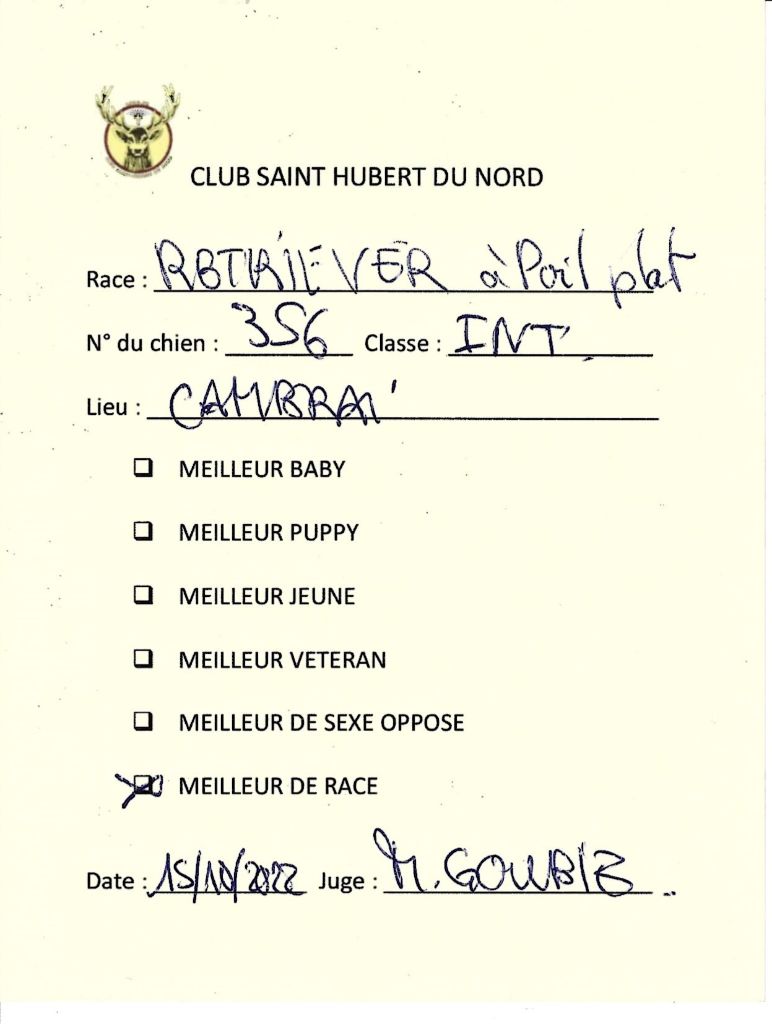 CLUB SAINT HUBERT DU NORD
Race : RETRIEVER à Poil plat
N° du chien : 356 Classe : INT
Lieu : CAMBRAI
❑ MEILLEUR BABY
❑ MEILLEUR PUPPY
❑ MEILLEUR JEUNE
❑ MEILLEUR VETERAN
❑ MEILLEUR DE SEXE OPPOSE
❑ MEILLEUR DE RACE
Date : 15/10/2022 Juge : M. GOUBIE